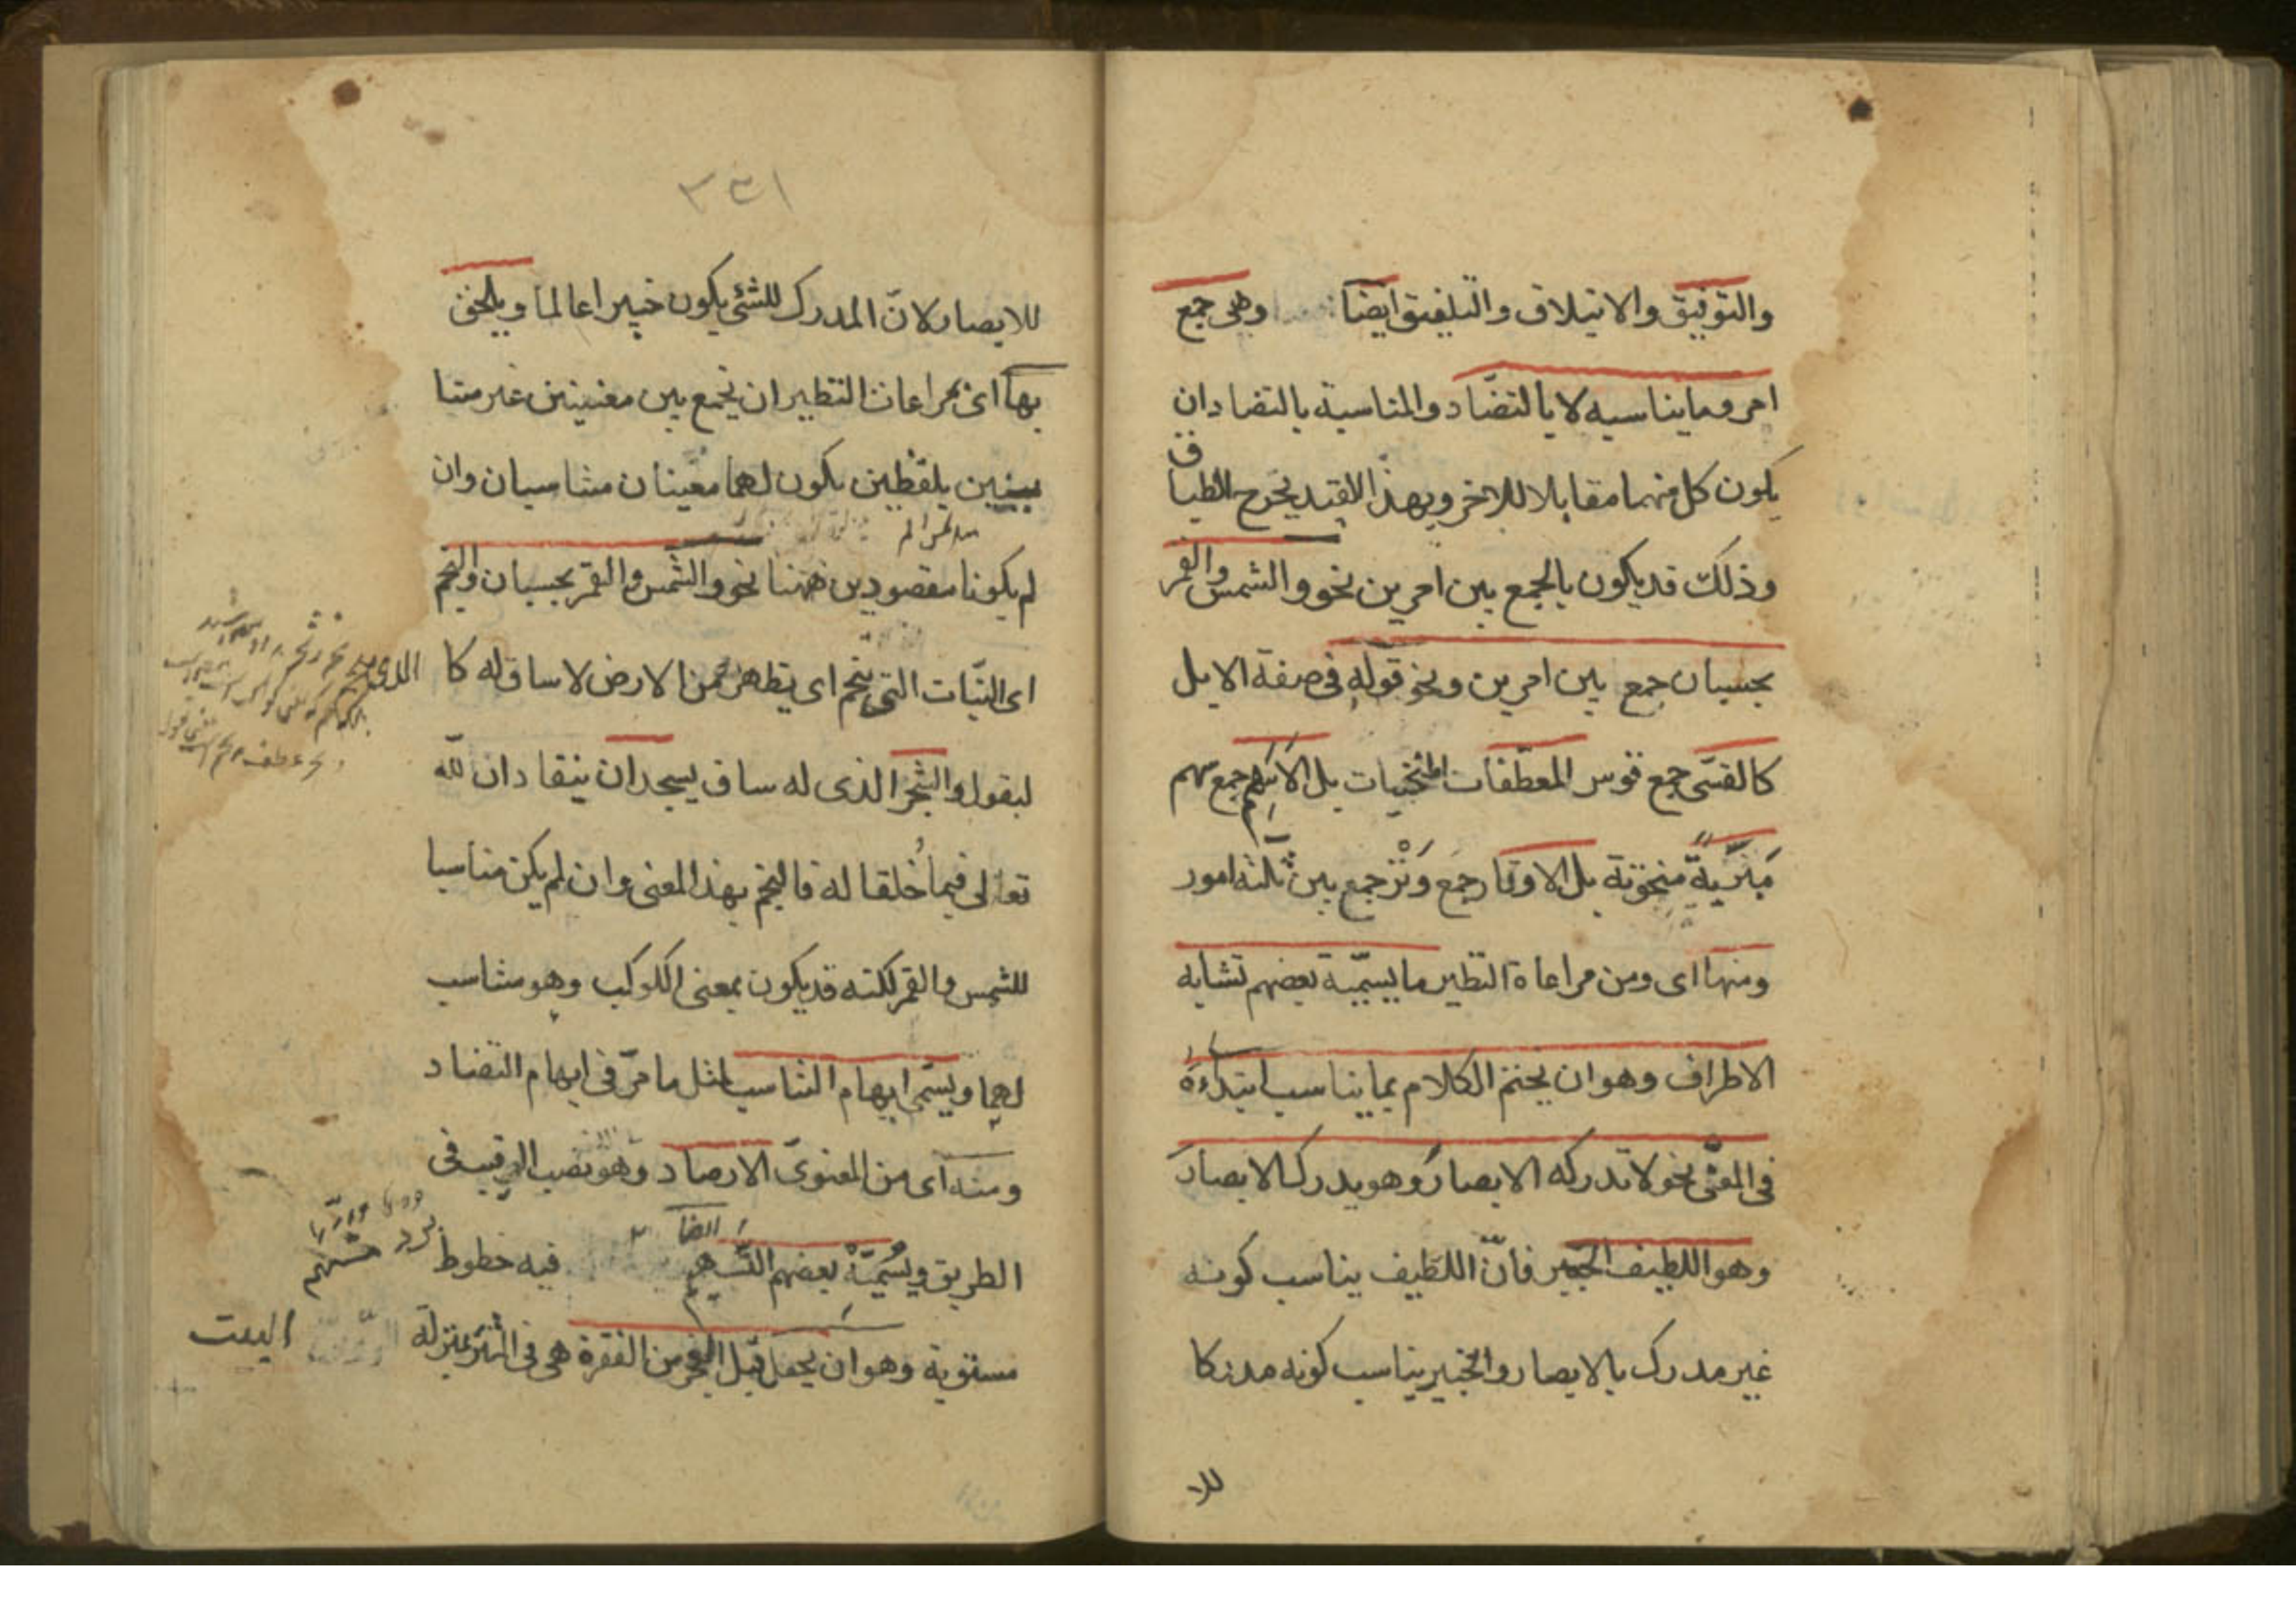 والتوفيق والايتلاف والتلفيق ايضا وهى جمع
امر وما يناسبه لا بالتضاد والمناسبة بالتضاد ان
يكون كل منهما مقابلا للاخر وبهذا القيد يخرج الطباق
وذلك قد يكون بالجمع بين امرين نحو والشمس والقمر
بحسبان جمع بين امرين ونحو قوله فى صفة الابل
كالقسى جمع قوس المعطفات المنحنيات بل الاسهم جمع سهم
مبرية منحوتة بل الاوتار جمع وتر جمع بين ثلثة امور
ومنها اى ومن مراعاة النظير ما يسميه بعضهم تشابه
الاطراف وهو ان يختم الكلام بما يناسب ابتداءه
فى المعنى نحو لا تدركه الابصار وهو يدرك الابصار
وهو اللطيف الخبير فان اللطيف يناسب كونه
غير مدرك بالابصار والخبير يناسب كونه مدركا
للا
٣٣١
للابصار لان المدرك للشئ يكون خبيرا عالما ويلحق
بها اى بمراعات النظير ان يجمع بين معنيين غير متنا
سبين بلفظين يكون لهما معنيان متناسبان وان
لم يكونا مقصودين ههنا نحو والشمس والقمر بحسبان والنجم
اى النبات الذى ينجم اى يظهر من الارض لا ساق له كا
لبقول والشجر الذى له ساق يسجدان ينقادان لله
تعالى فيما خلقا له فالنجم بهذا المعنى وان لم يكن مناسبا
للشمس والقمر لكنه قد يكون بمعنى الكوكب وهو مناسب
لهما ويسمى ايهام التناسب لمثل ما مر فى ايهام التضاد
ومنه اى من المعنوى الارصاد وهو نصب الرقيب فى
الطريق ويسميه بعضهم التسهيم ايضا برد مسهم فيه خطوط
مستوية وهو ان يجعل قبل العجز من الفقرة هى فى النثر بمنزلة البيت